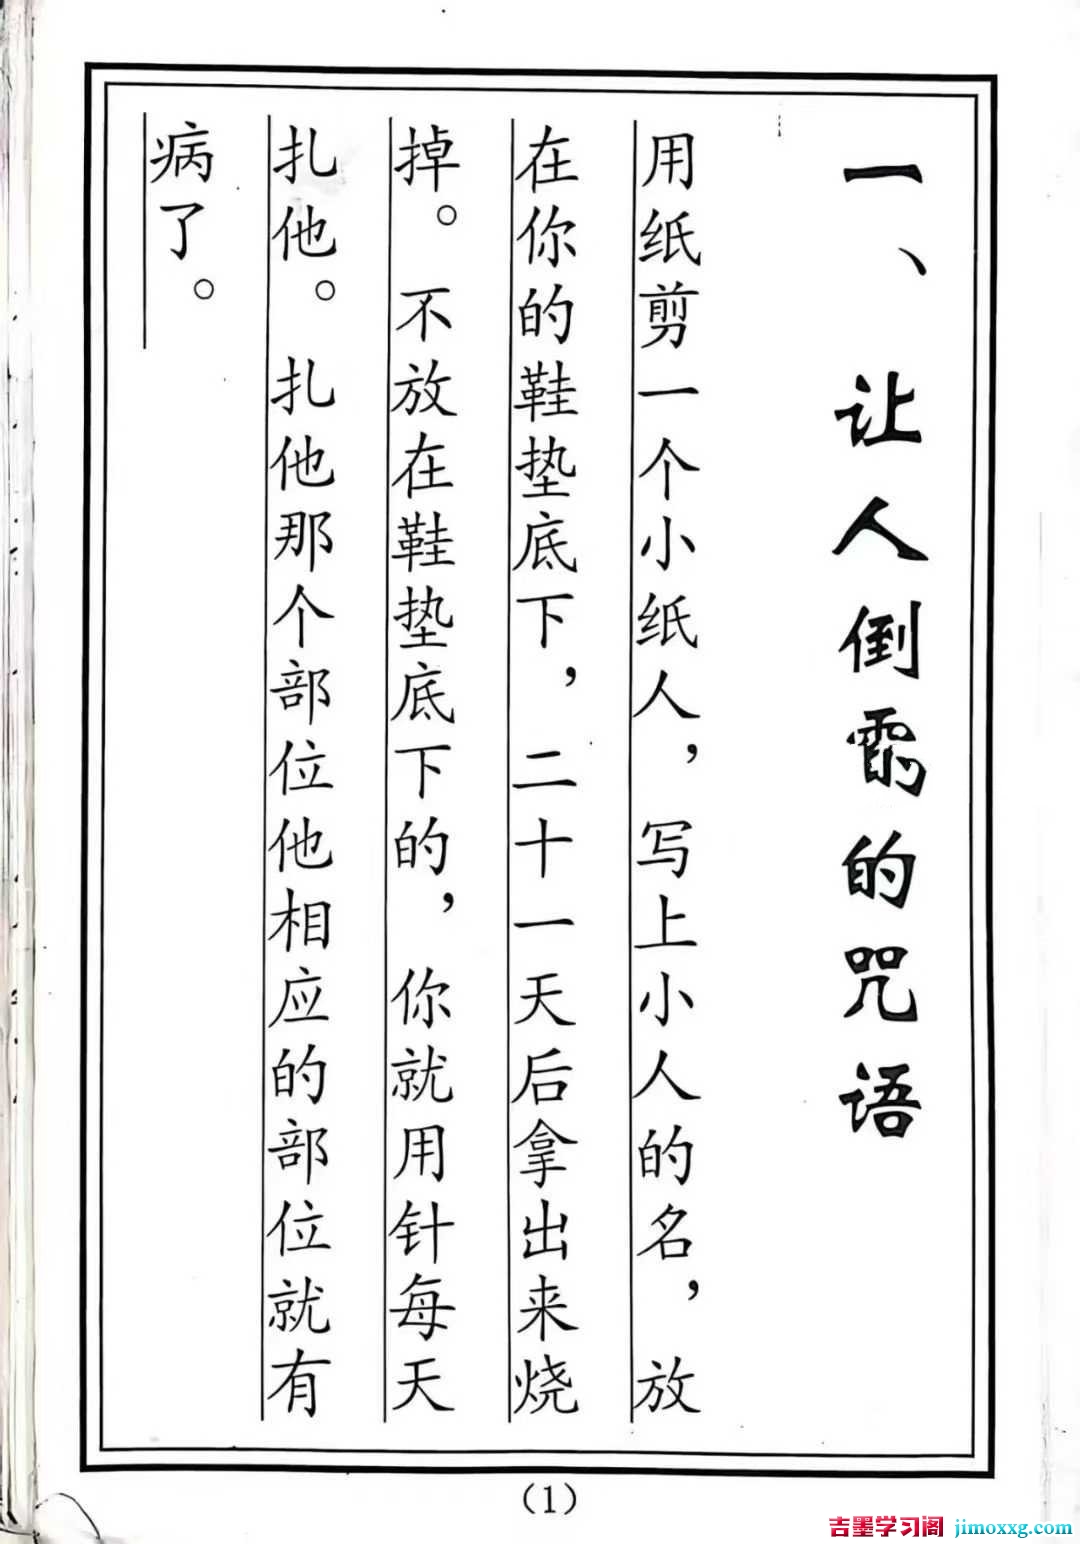 一、让人倒霉的咒语
用纸剪一个小纸人，写上小人的名，放
在你的鞋垫底下，二十一天后拿出来烧
掉。不放在鞋垫底下的，你就用针每天
扎他。扎他那个部位他相应的部位就有
病了。
（1）
吉墨学习阁 jimoxxg.com